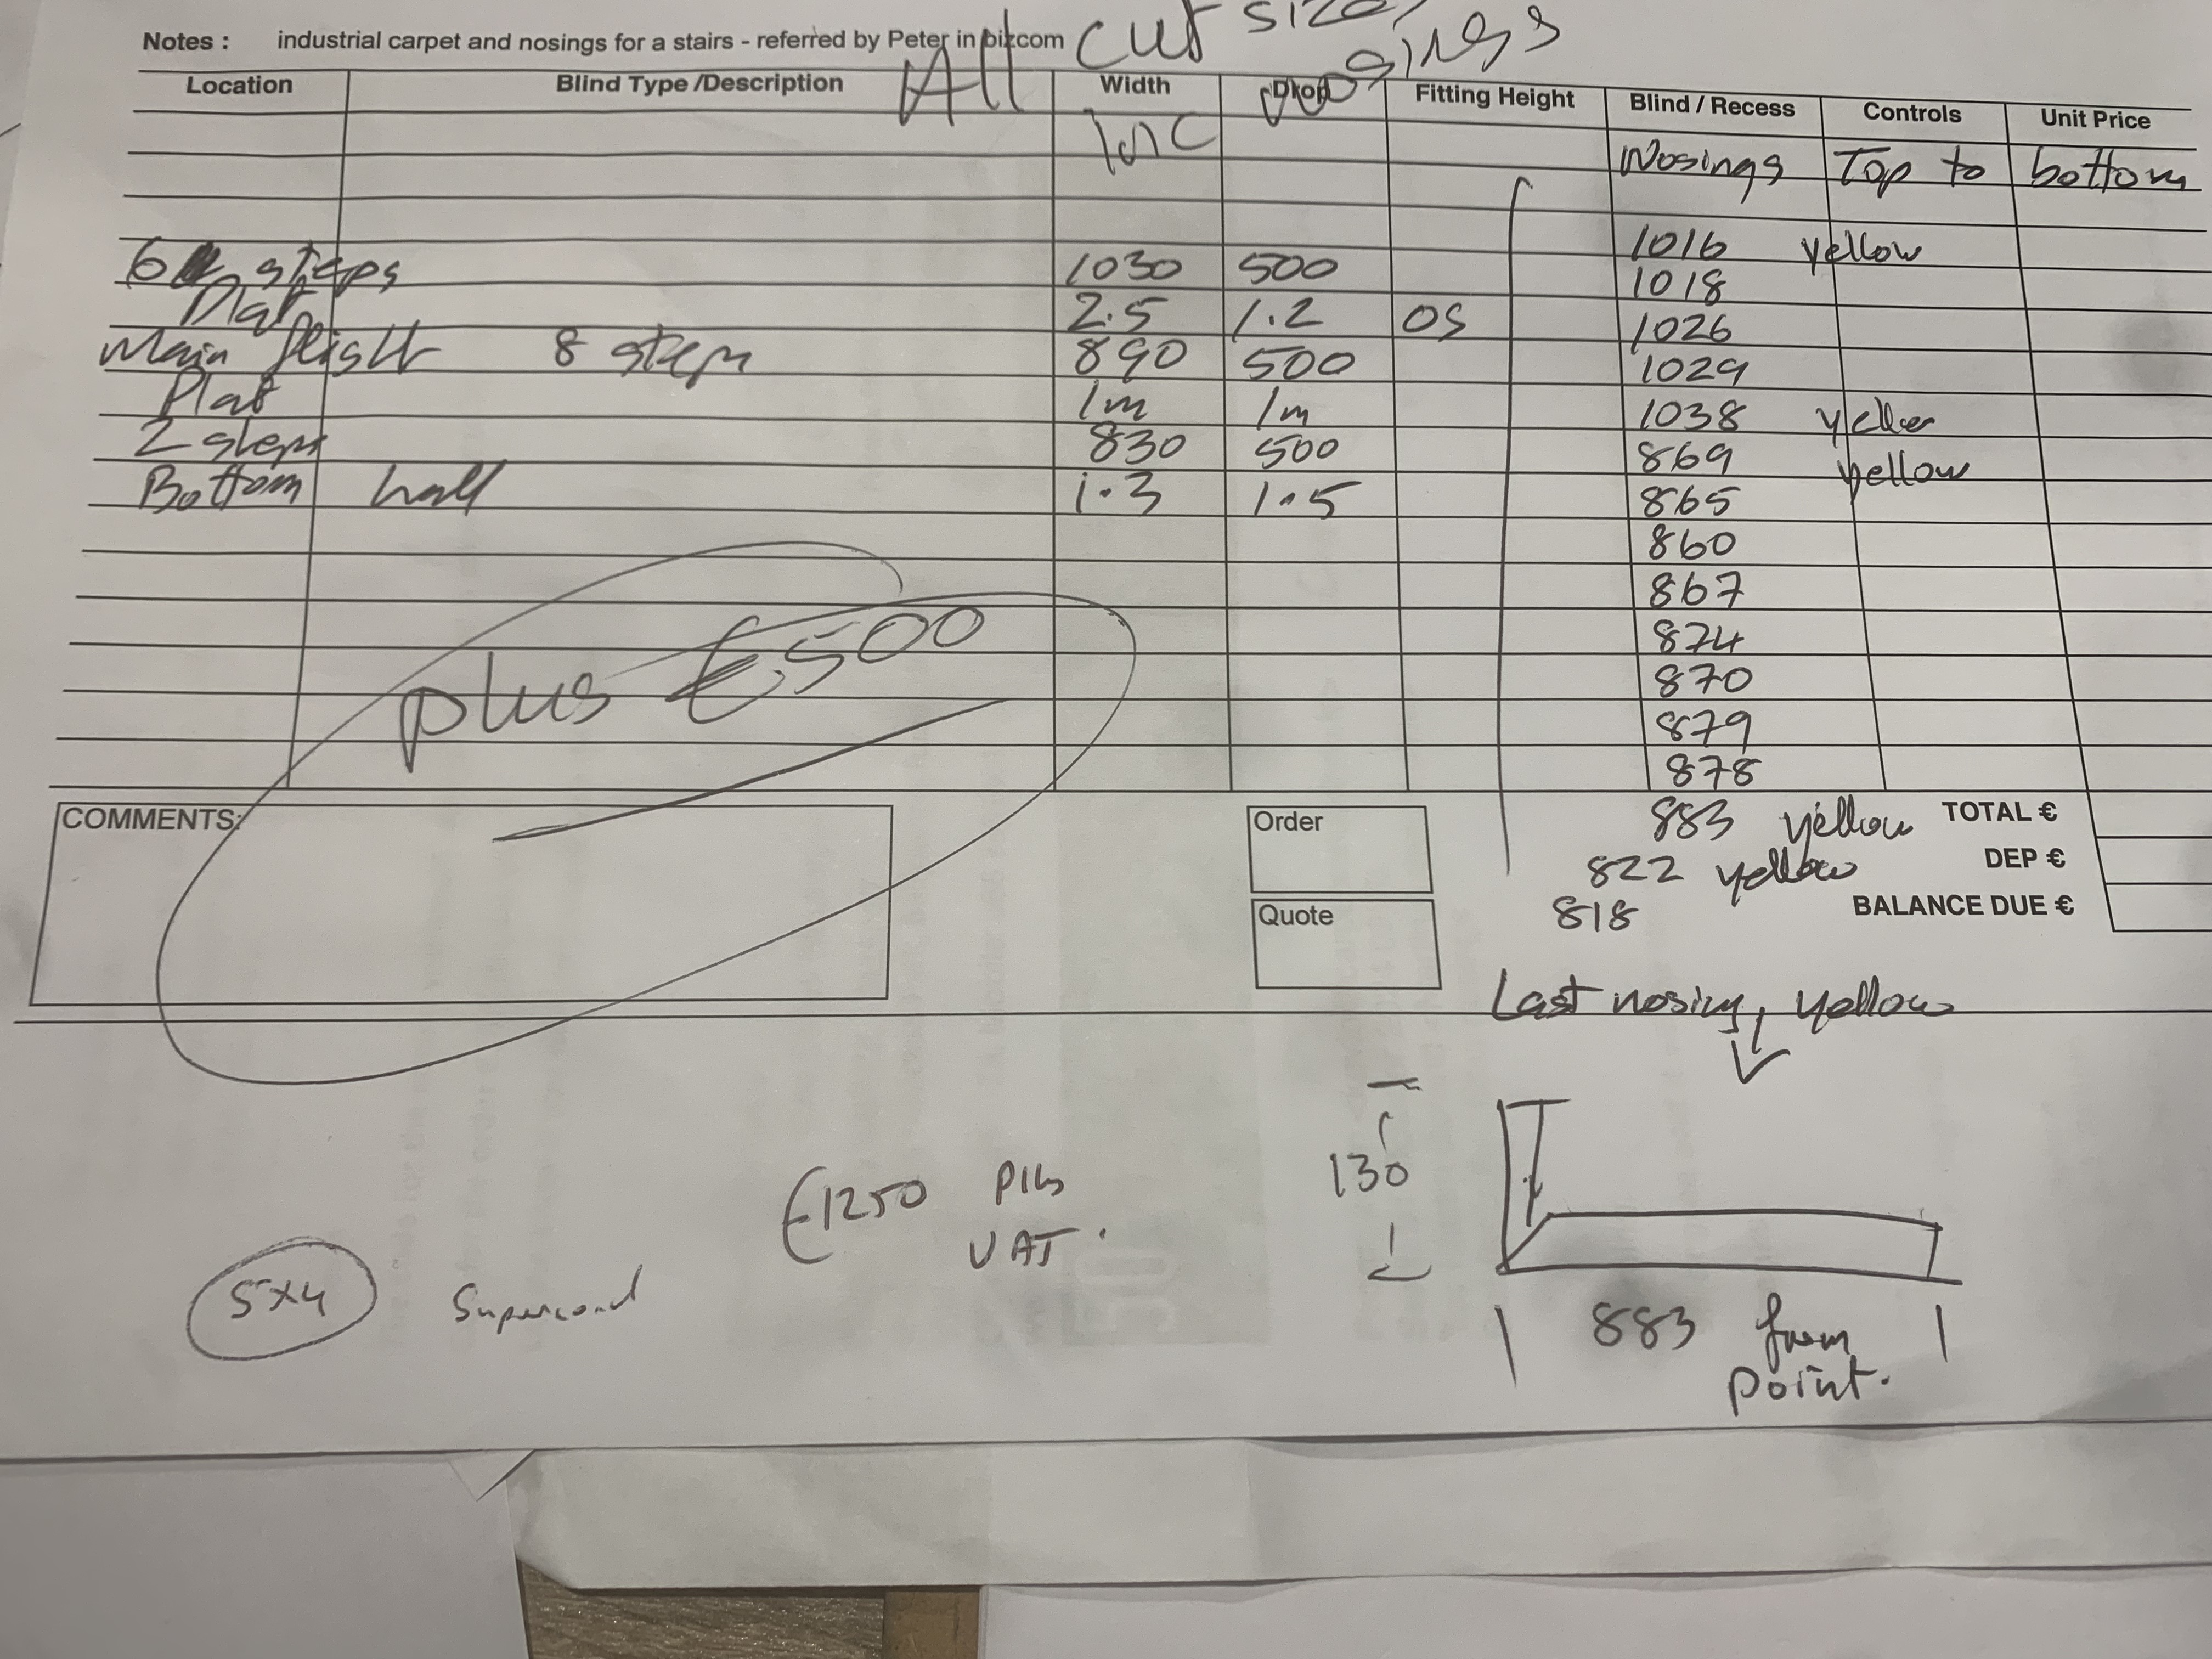 Notes : industrial carpet and nosings for a stairs - referred by Peter in bizcom
All cut size
nosings
inc
Location Blind Type /Description Width Drop Fitting Height Blind / Recess Controls Unit Price
Nosings Top to bottom
1016 yellow
6 steps 1030 500
1018
Plat 2.5 1.2 OS
1026
Main flight 8 steps 890 500
1029
Plat 1m 1m
1038 yellow
2 steps 830 500
869 yellow
Bottom hall 1.3 1.5
865
860
867
874
870
879
878
plus €500
COMMENTS:
Order
Quote
883 yellow TOTAL €
822 yellow DEP €
818 BALANCE DUE €
Last nosing, yellow
130
€1250 Plus
VAT.
5x4
883 from
point.